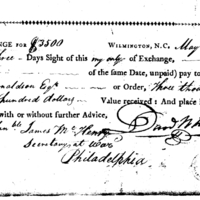 NGE for $3500 WILMINGTON, N.C. May
Days Sight of this my only of Exchange,
of the same Date, unpaid) pay to
naldson Esqr or Order, Three thous
hundred dollars Value received: And place
with or without further Advice,
James McHenry
Secretary at War
Philadelphia